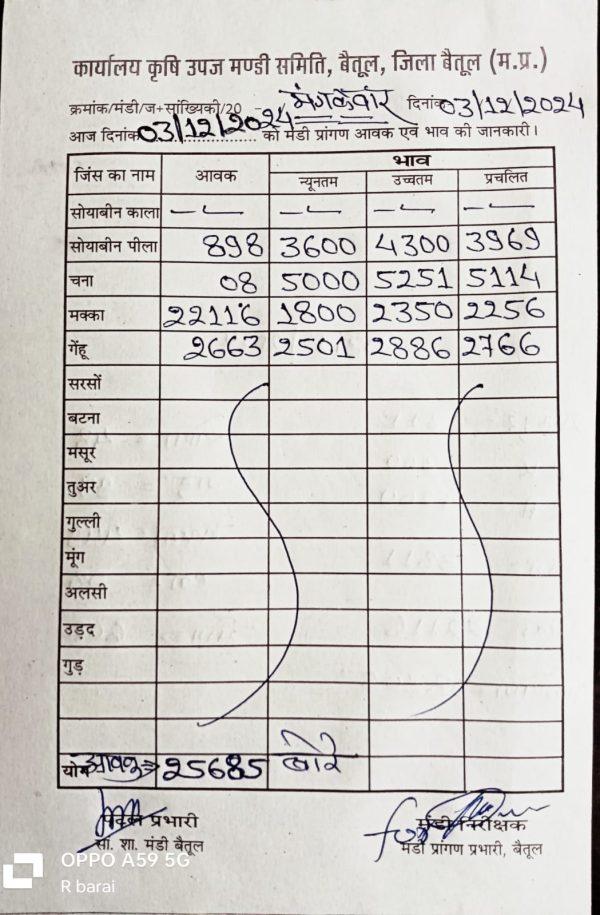 कार्यालय कृषि उपज मण्डी समिति, बैतूल, जिला बैतूल (म.प्र.)
क्रमांक/मंडी/ज+सांख्यिकी/20 - मंगलवार दिनांक 03/12/2024
आज दिनांक 03/12/2024 को मंडी प्रांगण आवक एवं भाव की जानकारी।
जिंस का नाम आवक भाव
न्यूनतम उच्चतम प्रचलित
सोयाबीन काला
सोयाबीन पीला 898 3600 4300 3969
चना 08 5000 5251 5114
मक्का 22116 1800 2350 2256
गेंहू 2663 2501 2886 2766
सरसों
बटना
मसूर
तुअर
गुल्ली
मूंग
अलसी
उड़द
गुड़
योग आवक ⇒ 25685 बोरे
प्रभारी मंडी निरीक्षक
सा. शा. मंडी बैतूल for मंडी प्रांगण प्रभारी, बैतूल
OPPO A59 5G
R barai